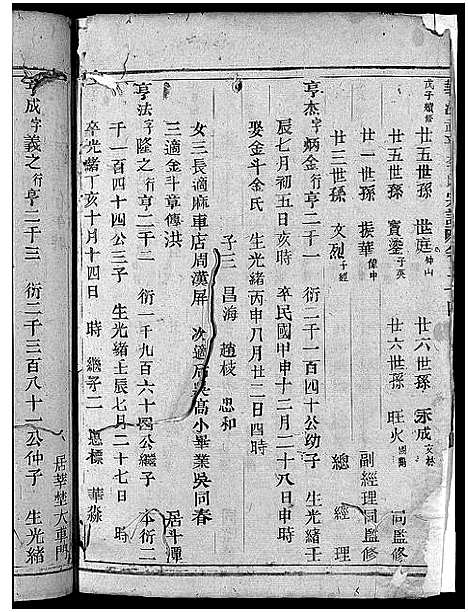 戊子續修 廿五世孫 世庭 仲山 廿六世孫 永成 文林
廿五世孫 寶鎏 于英 廿六世孫 旺火 同監修
廿三世孫 振華 偉申 副經理同監修
廿三世孫 文烈 于經 總經理
亨杰字炳金行亨二千一 衍二千一百四十公幼子 生光緒壬
辰七月初五日亥時 卒民國甲申十二月二十八日申時
娶金斗氏 生光緒丙申八月廿二日四時
子三 昌海 趙枝 忠和
女三長適麻車店周漢屏 次適居吳高小畢業吳同春
三適金斗章傳洪 居斗潭
亨法字隆之行亨二千二 衍一千九百六十四公繼子 本衍二
千一百四十四公三子 生光緒壬辰七月二十七日 時
卒光緒丁亥十月十四日 時 繼子二 忠標 華淼
居莘埜大車門
亨成字義之行亨二千三 衍二千三百八十一公仲子 生光緒